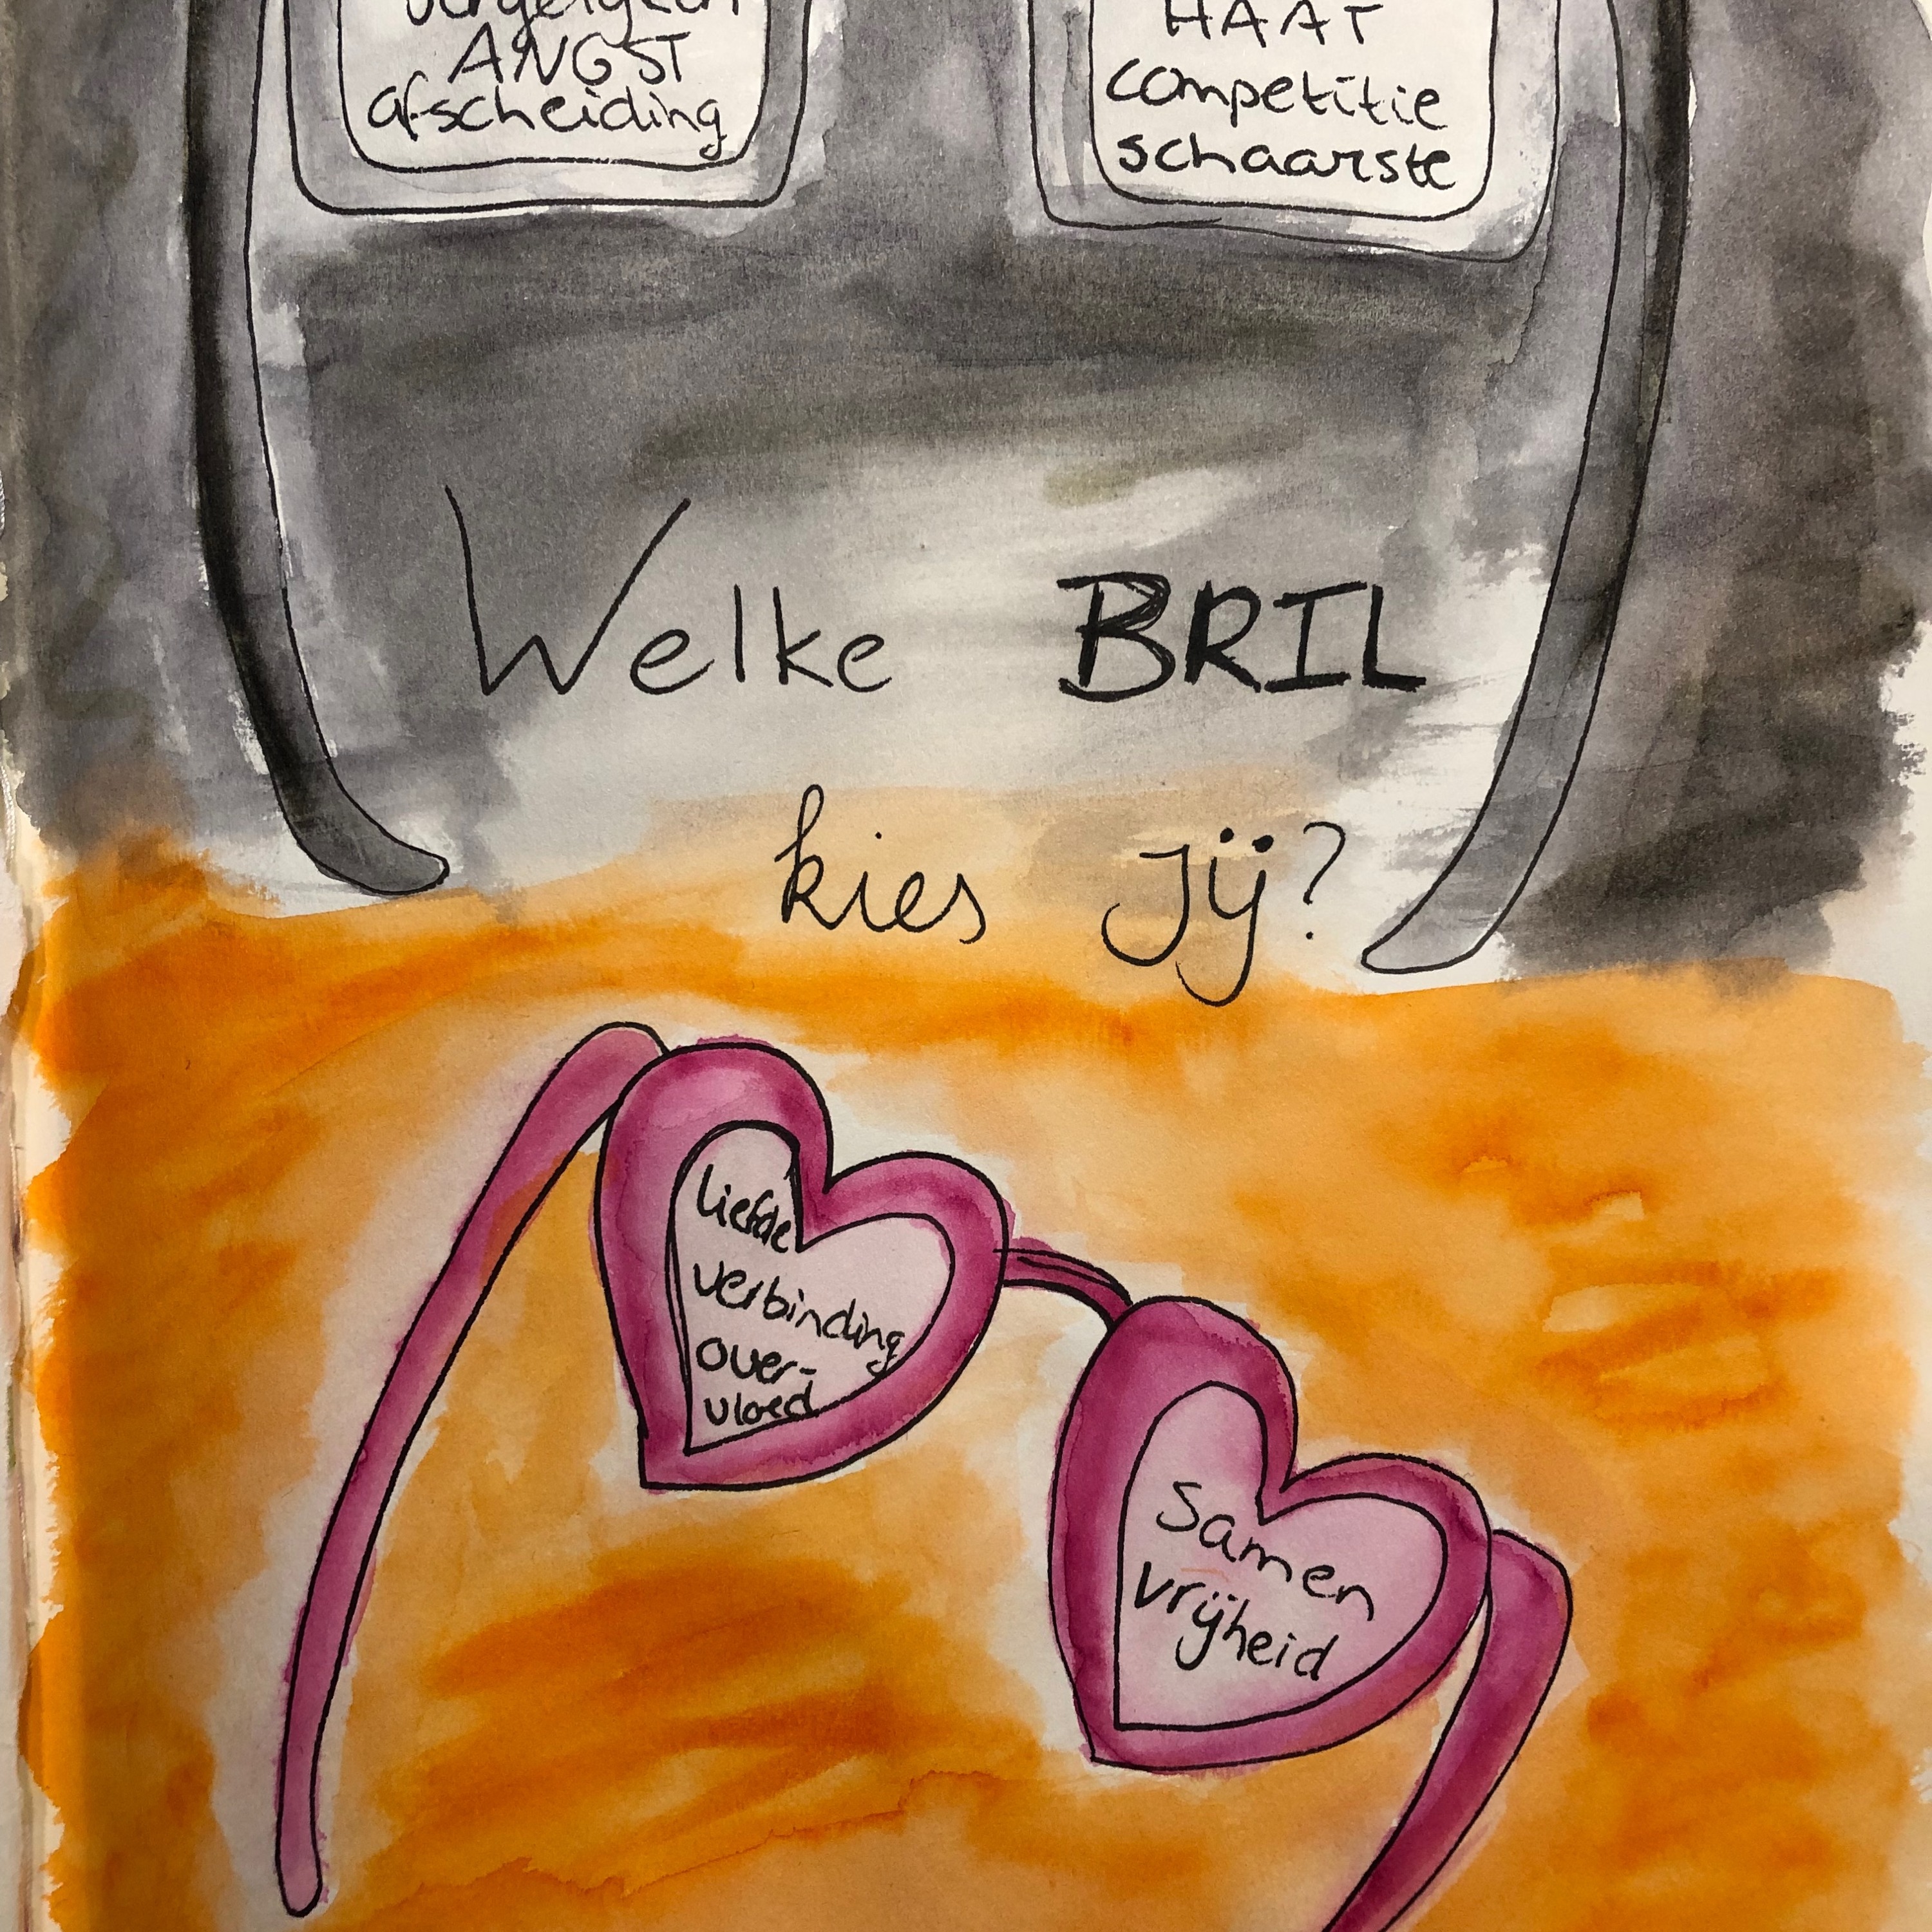 ANGST
afscheiding
HAAT
competitie
schaarste
Welke BRIL
kies jij?
liefde
verbinding
over-
vloed
Samen
vrijheid